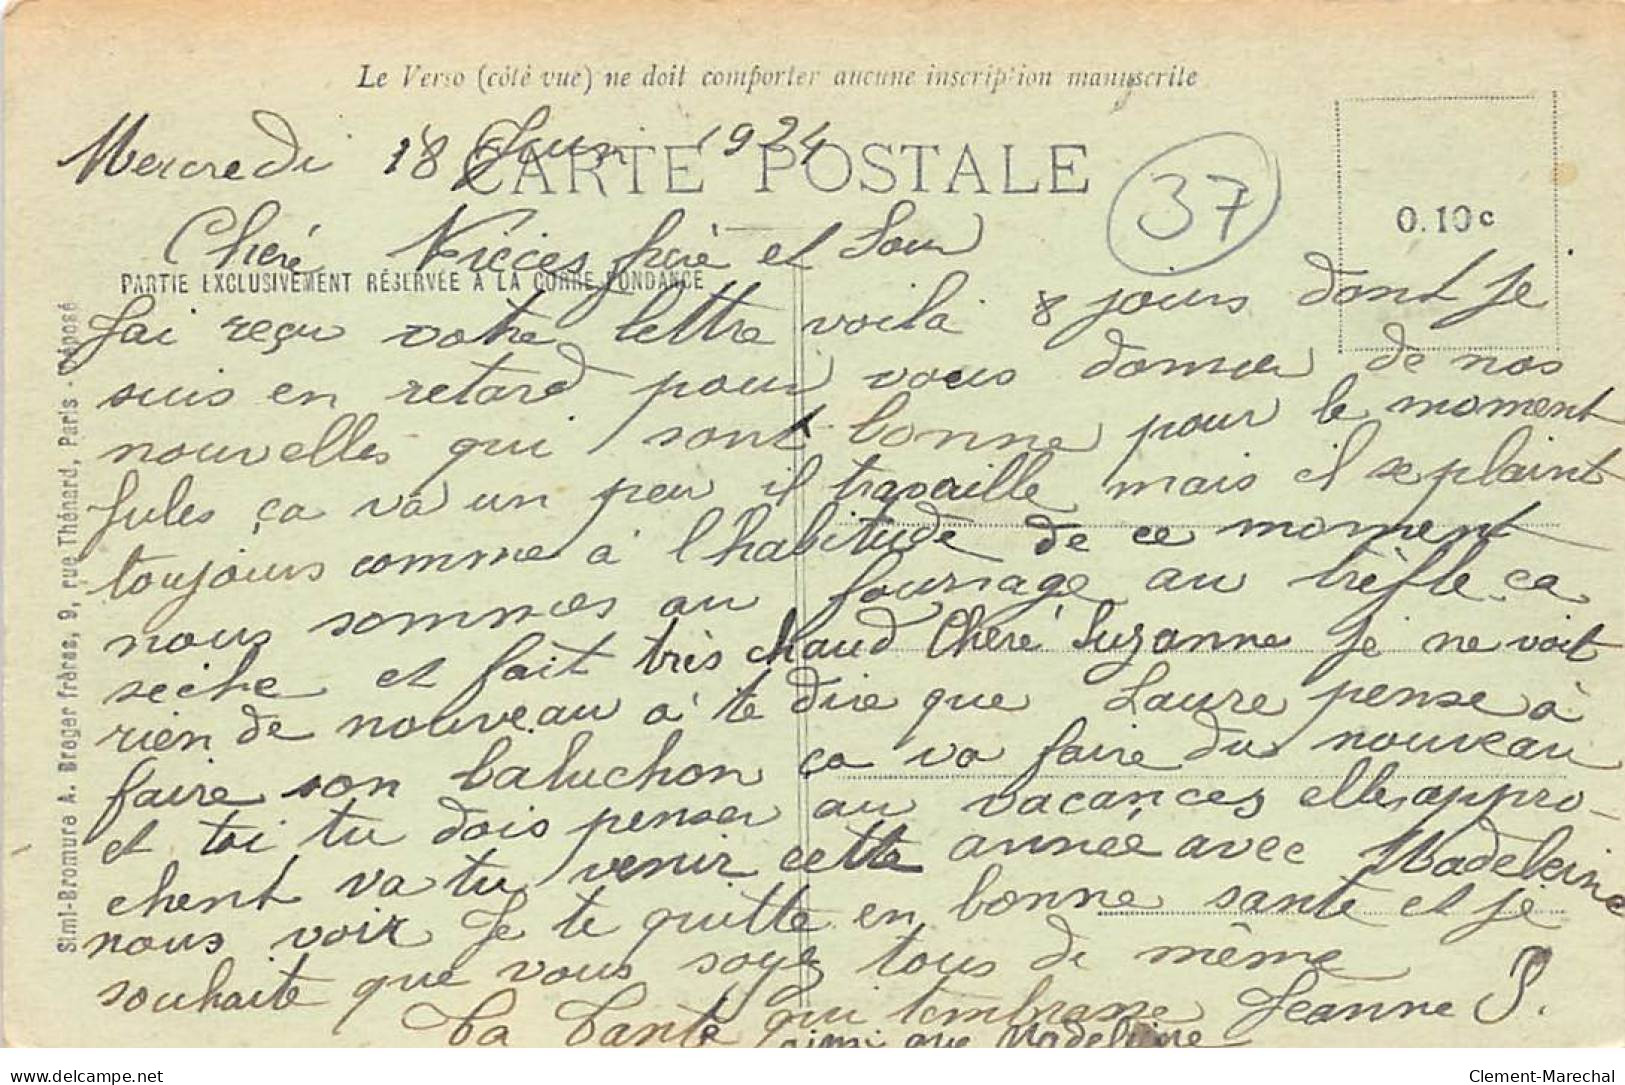 Le Verso (côté vue) ne doit comporter aucune inscription manuscrite
Mercredi 18 Juin 1924
CARTE POSTALE
37
0.10c
Cheré Nièces frère et Sœur
PARTIE EXCLUSIVEMENT RÉSERVÉE A LA CORRESPONDANCE
J'ai reçu votre lettre voila 8 jours dont je
suis en retard pour vous donner de nos
nouvelles qui sont bonne pour le moment
Jules ça va un peu il travaille mais il se plaint
toujours comme a l'habitude de ce moment
nous sommes au fourrage au trèfle ça
seche et fait très chaud Cheré Suzanne je ne voit
rien de nouveau a te dire que Laure pense à
faire son baluchon ça va faire du nouveau
et toi tu dois penser au vacances elles appro-
chent va tu venir cette année avec Madeleine
nous voir Je te quitte en bonne santé et je
souhaite que vous soyez tous de même
Ta Tante qui t'embrasse Jeanne P.
ainsi que Madeleine
Simi-Bromure A. Breger frères, 9, rue Thénard, Paris - Déposé
Clement-Marechal